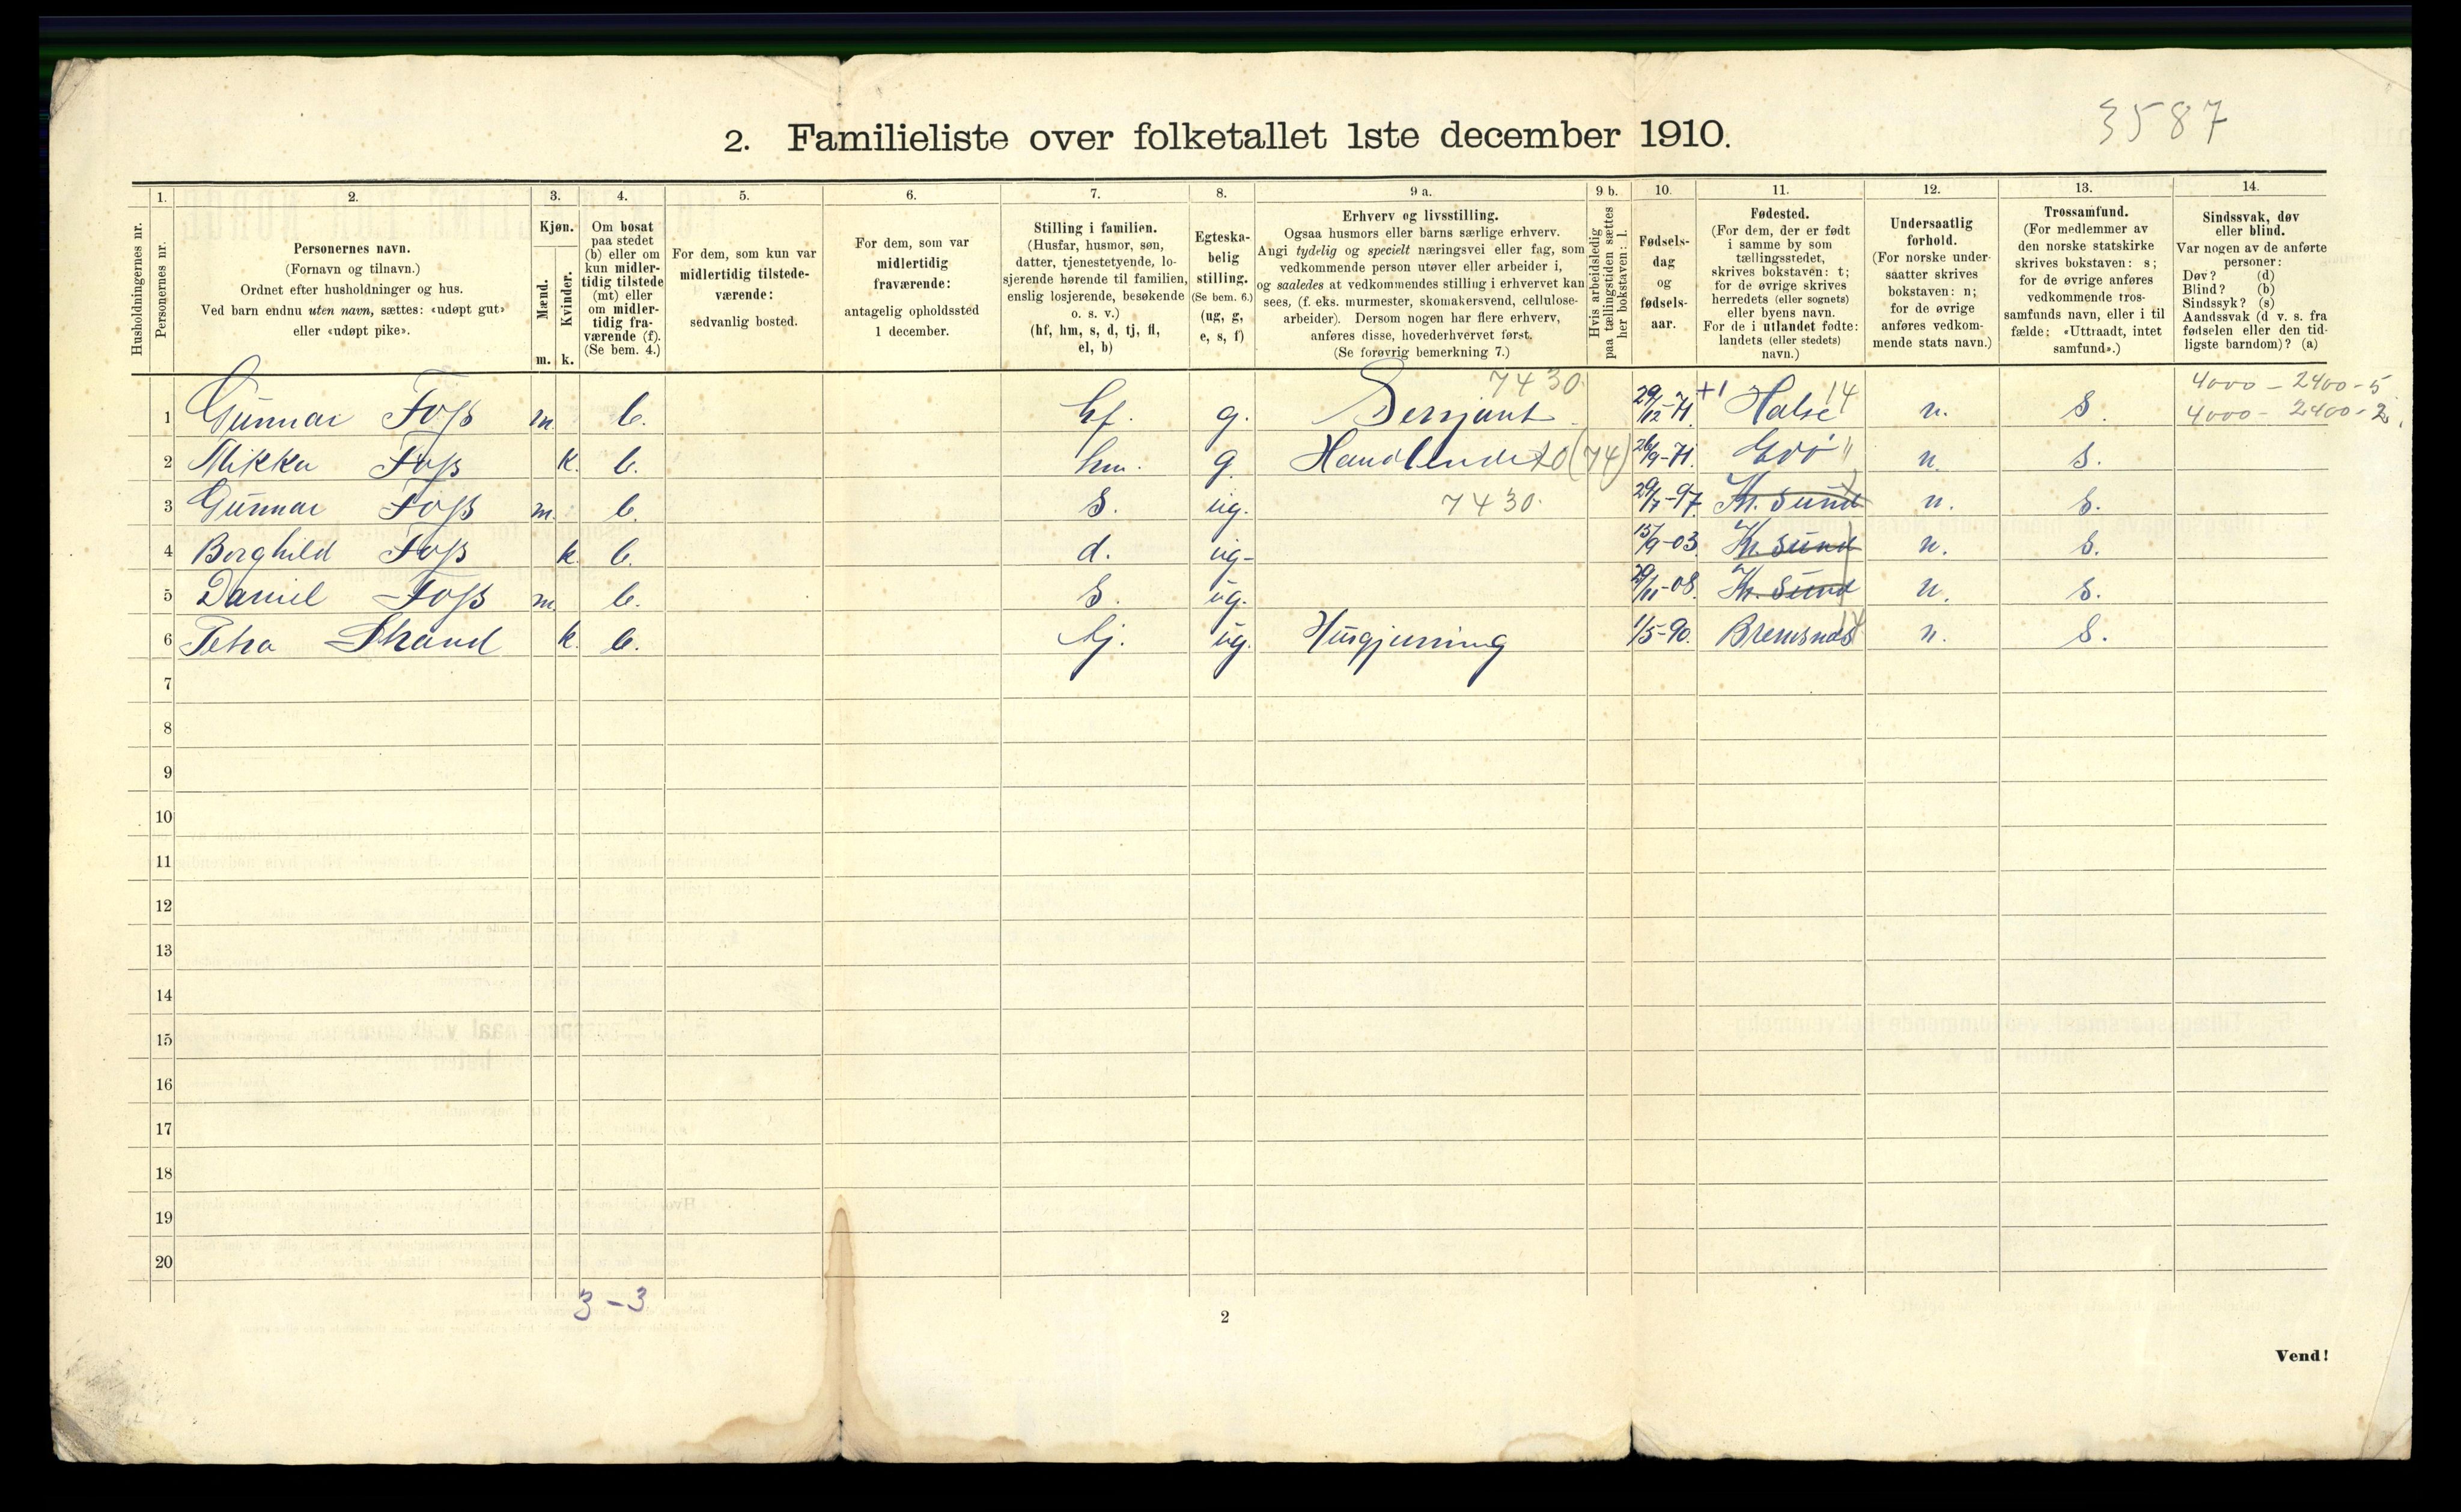 3587
2. Familieliste over folketallet 1ste december 1910.
1. 2. 3. 4. 5. 6. 7. 8. 9 a. 9 b. 10. 11. 12. 13. 14.
Husholdningernes nr.
Personernes nr.
Personernes navn.
(Fornavn og tilnavn.)
Ordnet efter husholdninger og hus.
Ved barn endnu uten navn, sættes: «udøpt gut»
eller «udøpt pike».
Kjøn.
Mænd.
Kvinder.
m. k.
Om bosat
paa stedet
(b) eller om
kun midler-
tidig tilstede
(mt) eller
om midler-
tidig fra-
værende (f).
(Se bem. 4.)
For dem, som kun var
midlertidig tilstede-
værende:
sedvanlig bosted.
For dem, som var
midlertidig
fraværende:
antagelig opholdssted
1 december.
Stilling i familien.
(Husfar, husmor, søn,
datter, tjenestetyende, lo-
sjerende hørende til familien,
enslig losjerende, besøkende
o. s. v.)
(hf, hm, s, d, tj, fl,
el, b)
Egteska-
belig
stilling.
(Se bem. 6.)
(ug, g,
e, s, f)
Erhverv og livsstilling.
Ogsaa husmors eller barns særlige erhverv.
Angi tydelig og specielt næringsvei eller fag, som
vedkommende person utøver eller arbeider i,
og saaledes at vedkommendes stilling i erhvervet kan
sees, (f. eks. murmester, skomakersvend, cellulose-
arbeider). Dersom nogen har flere erhverv,
anføres disse, hovederhvervet først.
(Se forøvrig bemerkning 7.)
Hvis arbeidsledig
paa tællingstiden sættes
her bokstaven: l.
Fødsels-
dag
og
fødsels-
aar.
Fødested.
(For dem, der er født
i samme by som
tællingsstedet,
skrives bokstaven: t;
for de øvrige skrives
herredets (eller sognets)
eller byens navn.
For de i utlandet fødte:
landets (eller stedets)
navn.)
Undersaatlig
forhold.
(For norske under-
saatter skrives
bokstaven: n;
for de øvrige
anføres vedkom-
mende stats navn.)
Trossamfund.
(For medlemmer av
den norske statskirke
skrives bokstaven: s;
for de øvrige anføres
vedkommende tros-
samfunds navn, eller i til
fælde: «Uttraadt, intet
samfund».)
Sindssvak, døv
eller blind.
Var nogen av de anførte
personer:
Døv? (d)
Blind? (b)
Sindssyk? (s)
Aandssvak (d v. s. fra
fødselen eller den tid-
ligste barndom)? (a)
7430 4000 - 2400 - 5
1 Gunnar Foss m. b. hf. g. Sersjant 29/12-71 +1 Halse 14 n. s. 4000 - 2400 - 2.
2 Mikka Foss k. b. hm. g. Handlende (74) 26/9-71. Edö n. s.
3 Gunnar Foss m. b. s. ug. 7430. 29/7-97. Kr. Sund n. s.
4 Borghild Foss k. b. d. ug- 15/9-03. Kr. Sund n. s.
5 Daniel Foss m. b. s. ug. 29/11-08. Kr. Sund n. s.
6 Petra Strand k. b. tj. ug. Husgjerning 1/5-90. Bremsnæs n. s.
7
8
9
10
11
12
13
14
15
16
17
18
19
20
3-3
2
Vend!